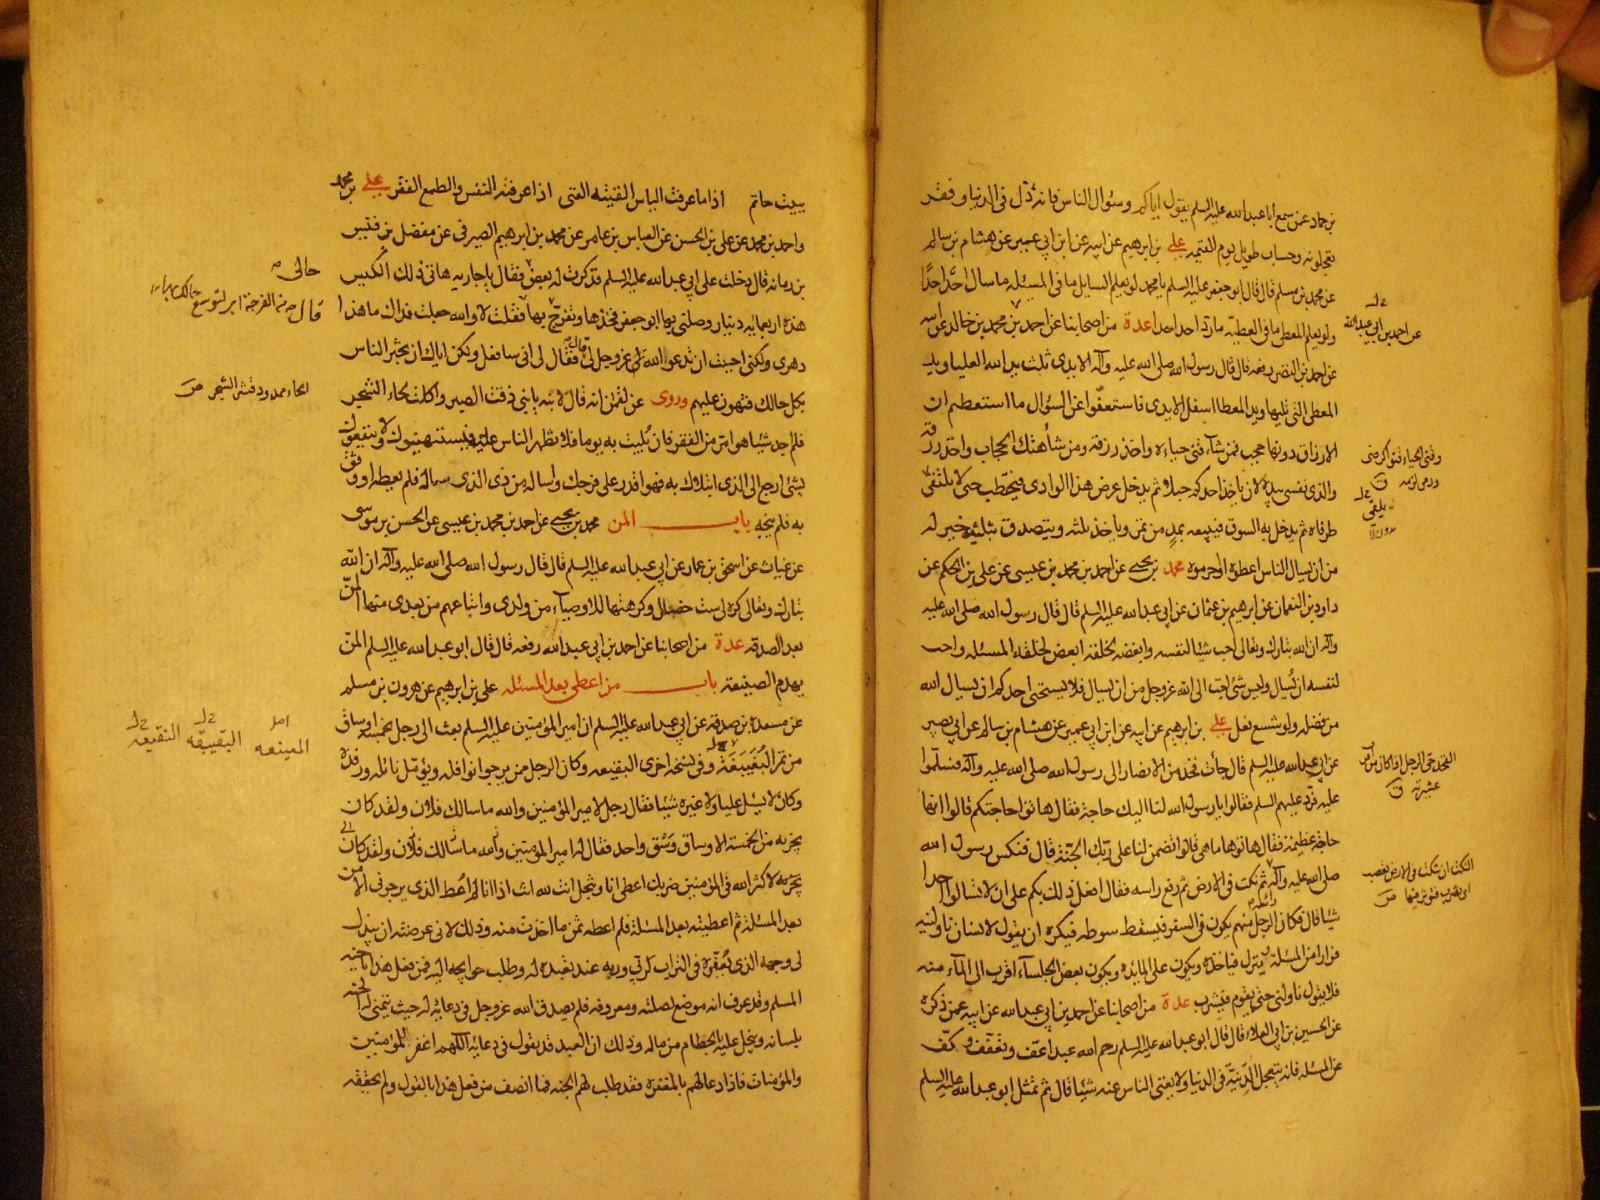 بن حماد عمن سمع ابا عبدالله عليه السلم يقول اياكم وسئوال الناس فانه ذل فى الدنيا وفقر
تتعجلونه وحساب طويل يوم القيمه على بن ابرهيم عن ابيه عن ابن ابى عمير عن هشام بن سالم
عن محمد بن مسلم قال قال ابو جعفر عليه السلم يا محمد لو يعلم السايل ما فى المسئله ما سال احد احدًا
ولو يعلم المعطى ما فى العطيه ما رد احد احدا عدة من اصحابنا عن احمد بن محمد بن خالد عن ابيه
عن احمد بن النضر رفعه قال قال رسول الله صلى الله عليه وآله الايدى ثلث يد الله العليا ويد
المعطى التى تليها ويد المعطا اسفل الايدى فاستعفّوا عن السؤال ما استعطتم ان
الارزاق دونها حجب فمن شآء قنى حياءه واخذ رزقه ومن شآء هتك الحجاب واخذ رزقه
والذى نفسى بيده لان ياخذ احدكم حبلا ثم يدخل عرض هذا الوادى فيحتطب حتى لا يلتقى
طرفاه ثم يدخل به السوق فيبيعه بمدٍ من تمر وياخذ ثلثه ويتصدق بثلثيه خير له
من ان يسال الناس اعطوه او حرموه محمد بن يحيى عن احمد بن محمد بن عيسى عن على بن الحكم عن
داود بن النعمان عن ابرهيم بن عثمان عن ابى عبدالله عليه السلم قال قال رسول الله صلى الله عليه
وآله ان الله تبارك وتعالى احب شيئا لنفسه وابغضه لخلقه ابغض لخلقه المسئله واحب
لنفسه ان يُسال وليس شئ احب الى الله عز وجل من ان يسال فلا يستحى احدكم ان يسال الله
من فضله ولو شسع نعل على بن ابرهيم عن ابيه عن ابن ابى عمير عن هشام بن سالم عن ابى بصير
عن ابى عبدالله عليه السلم قال جآت فخذ من الانصار الى رسول الله صلى الله عليه وآله فسلموا
عليه فرد عليهم السلم فقالوا يا رسول الله لنا اليك حاجة فقال هاتوا حاجتكم قالوا انها
حاجة عظيمة فقال هاتوها ما هى قالوا تضمن لنا على ربك الجنّة قال فنكس رسول الله
صلى الله عليه وآله ثم نكت فى الارض ثم رفع راسه فقال افعل ذلك بكم على ان لا تسالوا احدا
شيئا قال فكان الرجل منهم يكون فى السفر فيسقط سوطه فيكره ان يقول لانسان ناولنيه
فرارا من المسئلة ينزل فياخذه ويكون على المايده ويكون بعض الجلسآء اقرب الى المآء منه
فلا يقول ناولنى حتى يقوم فيشرب عدة من اصحابنا عن احمد بن ابى عبدالله عن ابيه عمن ذكره
عن الحسين بن ابى العلاء قال قال ابو عبدالله عليه السلم رحم الله عبدا عف وتعفف وكفّ
عن المسئله فانه يتعجل الدنيّة فى الدنيا ولا يغنى الناس عنه شيئا قال ثم تمثل ابو عبدالله عليه السلم
عن احمد بن ابى عبدالله
الفخذ حى الرجل اذا كان من اقرب
عشيرته ق
النكت ان تنكت فى الارض بقضيب
اى تضرب فتؤثر فيها ص
ببيت حاتم اذا ما عرفت الياس الفيته الغنى اذا عرفته النفس والطمع الفقر على بن محمد
واحمد بن محمد عن على بن الحسن عن العباس بن عامر عن محمد بن ابرهيم الصيرفى عن مفضل بن قيس
بن رمانه قال دخلت على ابى عبدالله عليه السلم فذكرت له بعض فقال يا جاريه هاتى ذلك الكيس
هذه اربعمايه دينار وصلنى بها ابو جعفر فخذها وتفرج بها فقلت لا والله جعلت فداك ما هذا
دهرى ولكنى احببت ان تدعو الله لى عز وجل فقال لى انى سافعل ولكن اياك ان تخبر الناس
بكل حالك فتهون عليهم وروى عن لقمن انه قال لابنه يا بنى ذقت الصبر واكلت لحاء الشجر
فلم اجد شيئا هو امر من الفقر فان بُليت به يوما فلا تظهر الناس عليه فيستهينوك ولا ينفعوك
بشئ ارجع الى الذى ابتلاك به فهو اقدر على فرجك واساله من ذى الذى ساله فلم يعطه او وثق
به فلم ينجه باب المن محمد بن يحيى عن احمد بن محمد بن عيسى عن الحسن بن موسى
عن غياث عن اسحق بن عمار عن ابى عبدالله عليه السلم قال قال رسول الله صلى الله عليه وآله ان الله
تبارك وتعالى كره لى ست خصال وكرهتها للاوصيآء من ولدى واتباعهم من بعدى منها المن
بعد الصدقه عدة من اصحابنا عن احمد بن ابى عبدالله رفعه قال قال ابو عبدالله عليه السلم المنّ
يهدم الصنيعة باب من اعطى بعد المسئله على بن ابرهيم عن هرون بن مسلم
عن مسعدة بن صدقه عن ابى عبدالله عليه السلم ان امير المؤمنين عليه السلم بعث الى رجل بخمسه اوساق
من تمر البُغَيبَغَة وفى نسخه اخرى البقيعه وكان الرجل ممن يرجو نوافله ويؤمل نائله ورفده
وكان لا يسئل عليا ولا غيره شيئا فقال رجل لامير المؤمنين والله ما سالك فلان ولقد كان
يجزيه من الخمسة الاوساق وَسْق واحد فقال له امير المؤمنين
لا كثر الله فى المؤمنين ضربك اعطى انا وتبخل انت لله انت اذا انا لم اُعط الذى يرجونى الا من
بعد المسئلة ثم اعطيته بعد المسئلة فلم اعطه ثمن ما اخذت منه وذلك لانى عرضته ان يبذل
لى وجهه الذى يُعفّره فى التراب لربى وربه عند تعبده له وطلب حوايجه اليه فمن فعل هذا باخيه
المسلم وقد عرف انه موضع لصلته ومعروفه فلم يصدق الله عز وجل فى دعائه له حيث يتمنى له الجنه
بلسانه ويبخل عليه بالحطام من ماله وذلك ان العبد قد يقول فى دعائه اللهم اغفر للمؤمنين
والمؤمنات فاذا دعا لهم بالمغفرة فقد طلب لهم الجنه فما انصف من فعل هذا بالقول ولم يحققه
حالى
اللحاء ممدود قشر الشجر ص
النقيعه